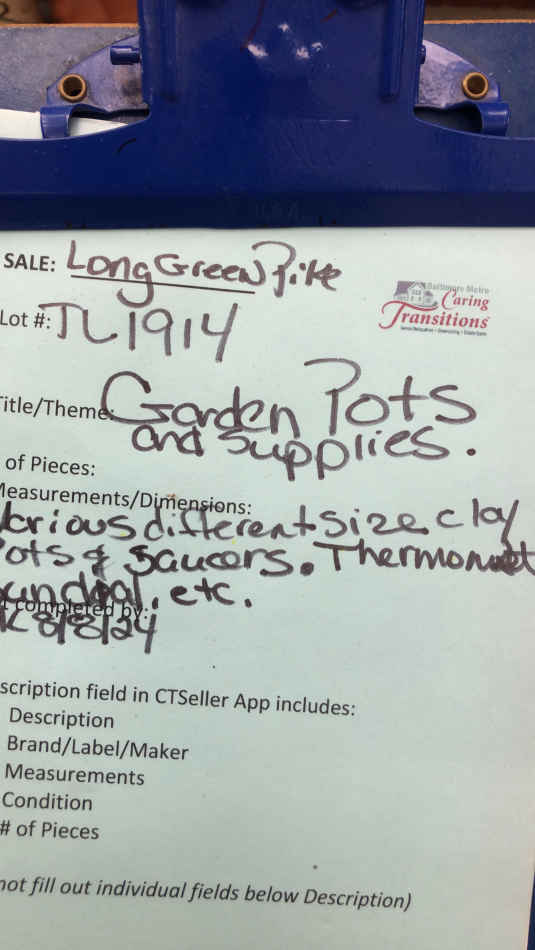 SALE: Long Green Pike
Baltimore Metro
Caring
Transitions
Lot #: TL1914
Title/Theme: Garden Pots
and Supplies.
of Pieces:
Measurements/Dimensions:
Various different size clay
Pots & Saucers. Thermomet
sundial, etc.
t completed by:
K 8/8/24
scription field in CTSeller App includes:
Description
Brand/Label/Maker
Measurements
Condition
# of Pieces
not fill out individual fields below Description)